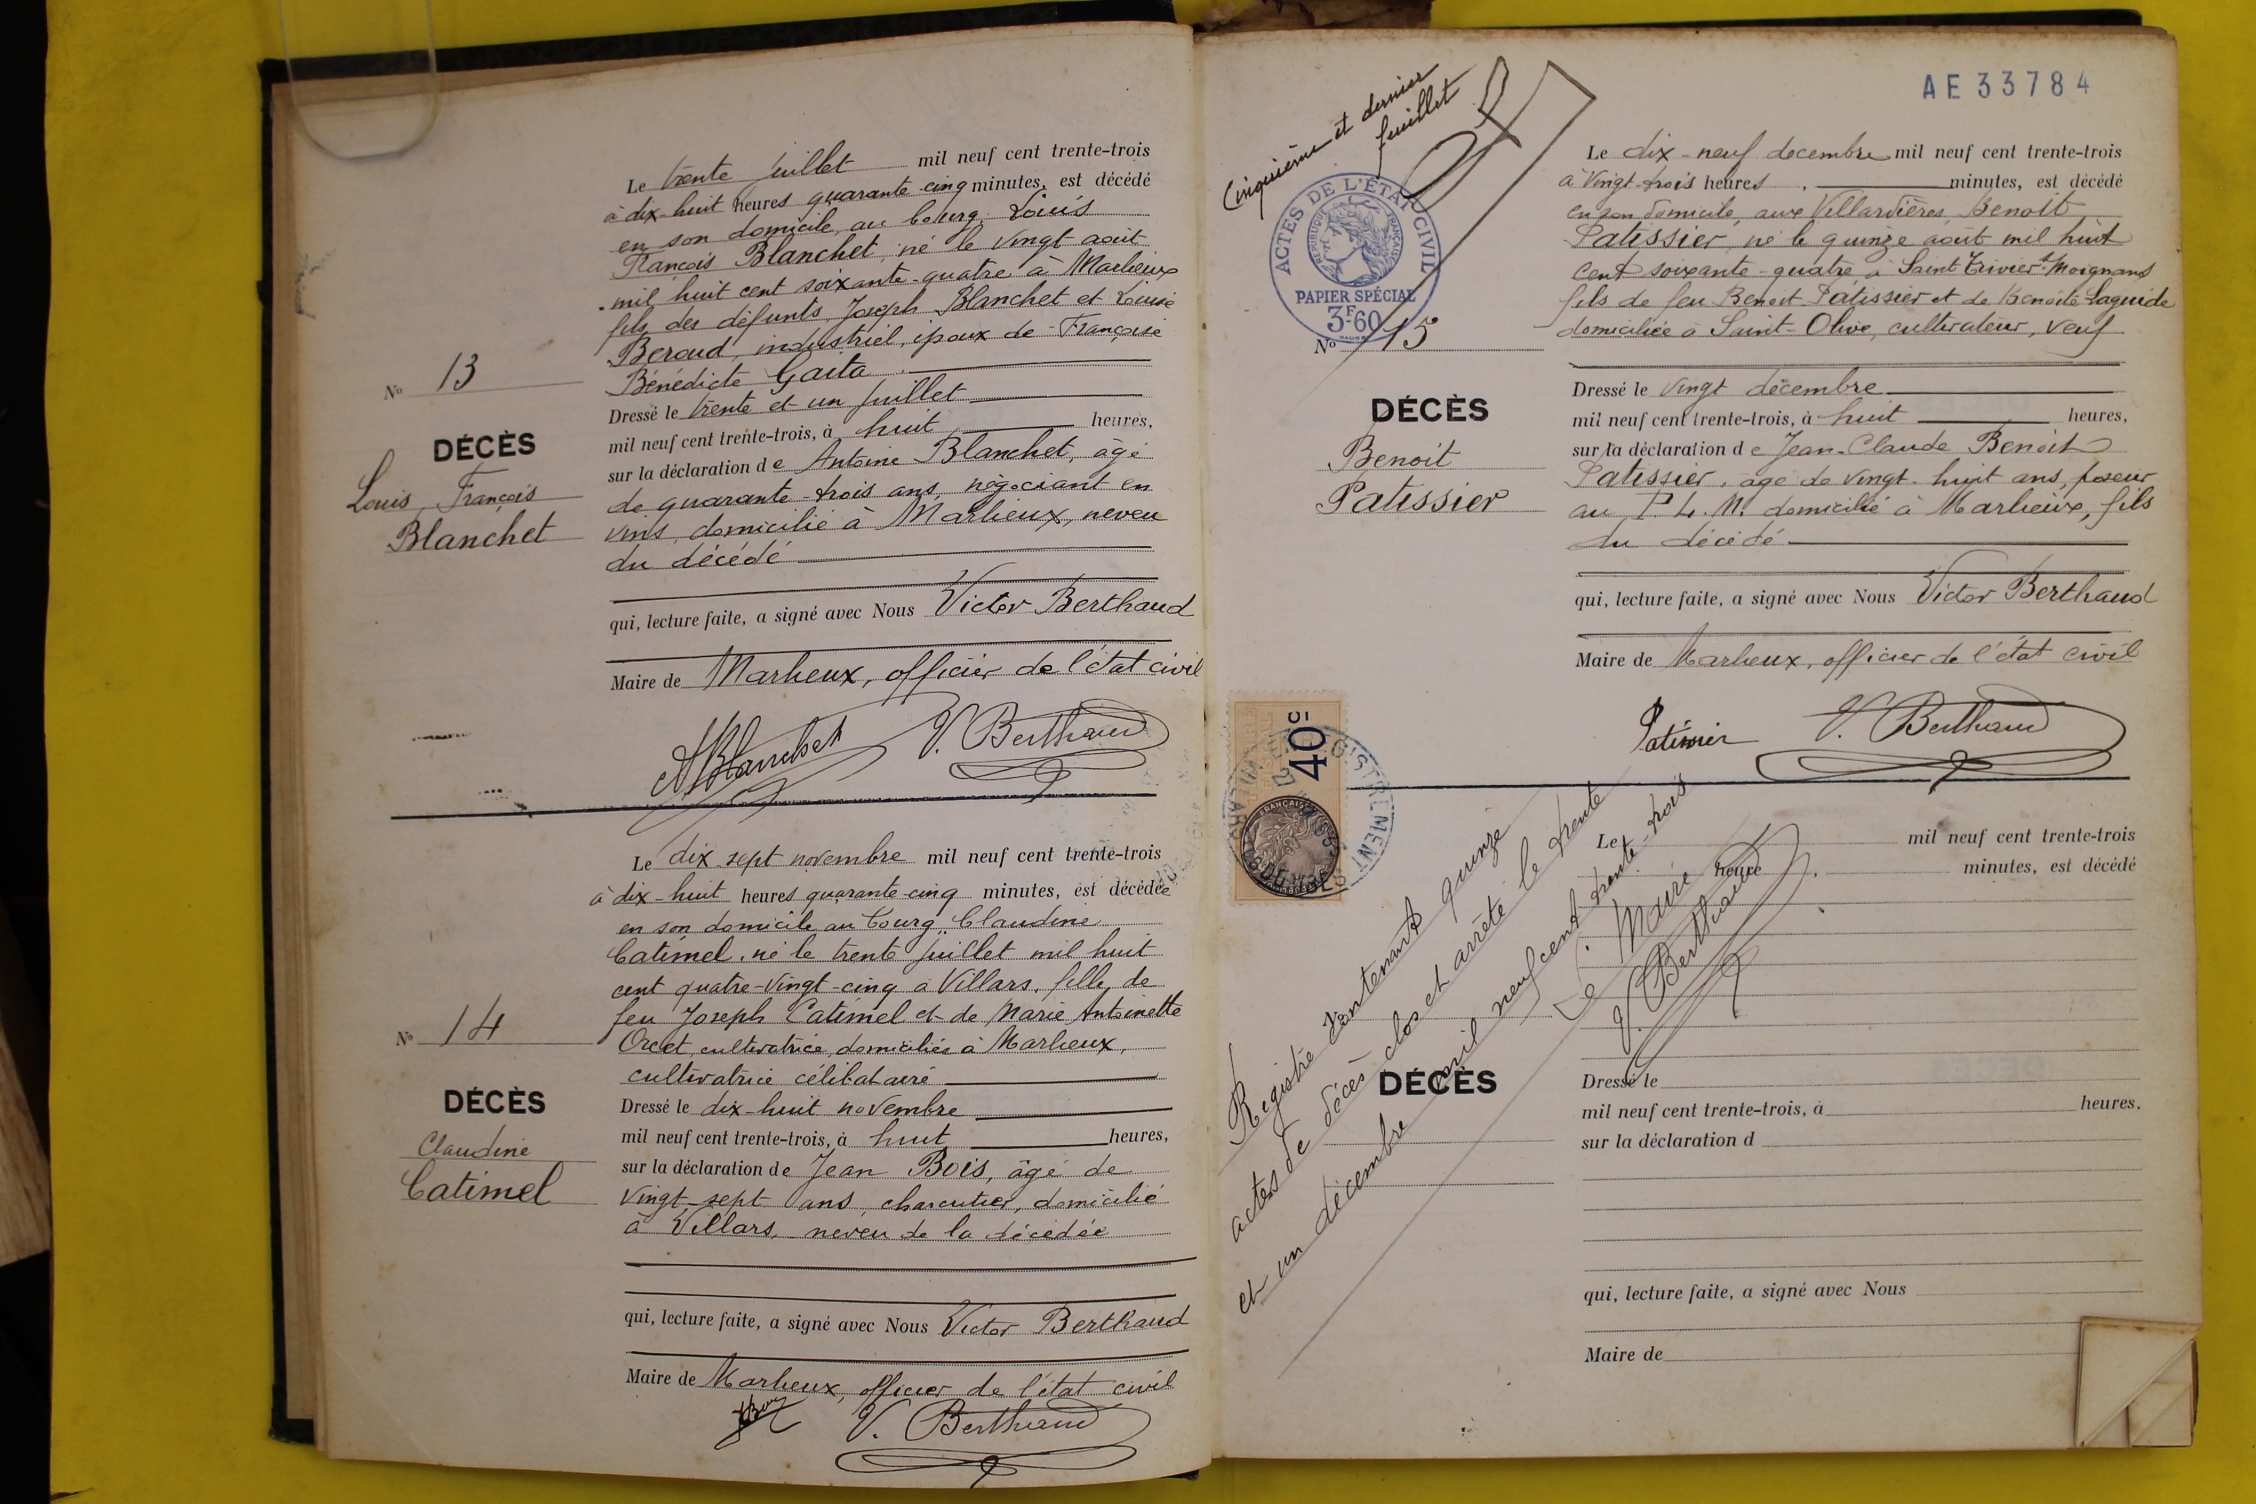 Le trente juillet mil neuf cent trente-trois
à dix-huit heures quarante-cinq minutes, est décédé
en son domicile, au bourg, Louis
François Blanchet, né le vingt août
mil huit cent soixante-quatre à Marlieux
fils des défunts Joseph Blanchet et Louise
Beroud, industriel, époux de Françoise
Bénédicte Gaita
No 13
DÉCÈS
Louis François
Blanchet
Dressé le trente et un juillet
mil neuf cent trente-trois, à huit heures,
sur la déclaration de Antoine Blanchet, âgé
de quarante-trois ans, négociant en
vins, domicilié à Marlieux, neveu
du décédé
qui, lecture faite, a signé avec Nous Victor Berthaud
Maire de Marlieux, officier de l'état civil
A Blanchet V. Berthaud
Le dix sept novembre mil neuf cent trente-trois
à dix-huit heures quarante-cinq minutes, est décédée
en son domicile au bourg, Claudine
Catimel, né le trente juillet mil huit
cent quatre-vingt-cinq à Villars, fille de
feu Joseph Catimel et de Marie Antoinette
Orcet, cultivatrice, domiciliée à Marlieux,
cultivatrice célibataire
No 14
DÉCÈS
Claudine
Catimel
Dressé le dix-huit novembre
mil neuf cent trente-trois, à huit heures,
sur la déclaration de Jean Bois, âgé de
vingt-sept ans, charcutier, domicilié
à Villars, neveu de la décédée
qui, lecture faite, a signé avec Nous Victor Berthaud
Maire de Marlieux, officier de l'état civil
V. Berthaud
AE 33784
Cinquième et dernier
feuillet
ACTES DE L'ÉTAT CIVIL
RÉPUBLIQUE FRANÇAISE
PAPIER SPÉCIAL
3F60
No 15
DÉCÈS
Benoit
Patissier
Le dix-neuf decembre mil neuf cent trente-trois
à vingt-trois heures, minutes, est décédé
en son domicile, aux Villardières, Benoit
Patissier, né le quinze août mil huit
cent soixante-quatre à Saint Trivier s/Moignans
fils de feu Benoit Patissier et de Benoite Laguide
domiciliée à Saint-Olive, cultivateur, veuf
Dressé le vingt décembre
mil neuf cent trente-trois, à huit heures,
sur la déclaration de Jean-Claude Benoit
Patissier, âgé de vingt-huit ans, poseur
au P. L. M. domicilié à Marlieux, fils
du décédé
qui, lecture faite, a signé avec Nous Victor Berthaud
Maire de Marlieux, officier de l'état civil
Patissier V. Berthaud
40c
Registre contenant quinze
actes de décès clos et arrêté le trente
et un décembre mil neuf cent trente-trois
Le Maire
V. Berthaud
Le mil neuf cent trente-trois
heure , minutes, est décédé
DÉCÈS
Dressé le
mil neuf cent trente-trois, à heures.
sur la déclaration d
qui, lecture faite, a signé avec Nous
Maire de